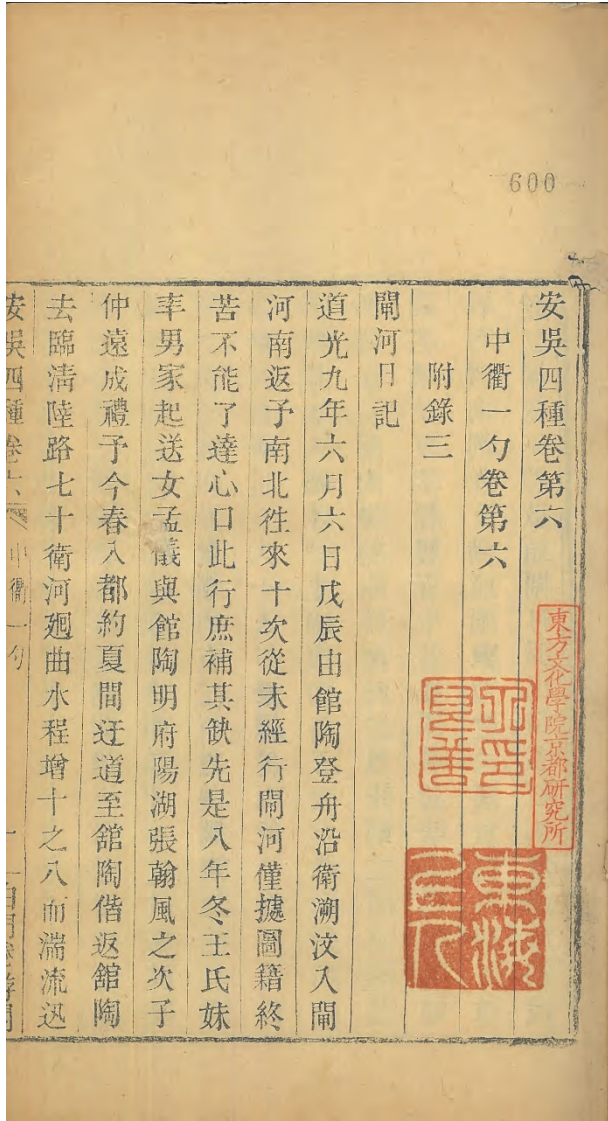 600
安吳四種卷第六
中衢一勺卷第六
附錄三
閘河日記
道光九年六月六日戊辰由館陶登舟沿衛溯汶入閘
河南返予南北徃來十次從未經行閘河僅據圖籍終
苦不能了達心口此行庶補其缺先是八年冬王氏妹
率男家起送女孟儀與館陶明府陽湖張翰風之次子
仲遠成禮予今春入都約夏間迂道至舘陶偕返舘陶
去臨清陸路七十衛河廻曲水程增十之八而湍流迅
安吳四種卷六 中衢一勺 一
東方文化學院京都研究所